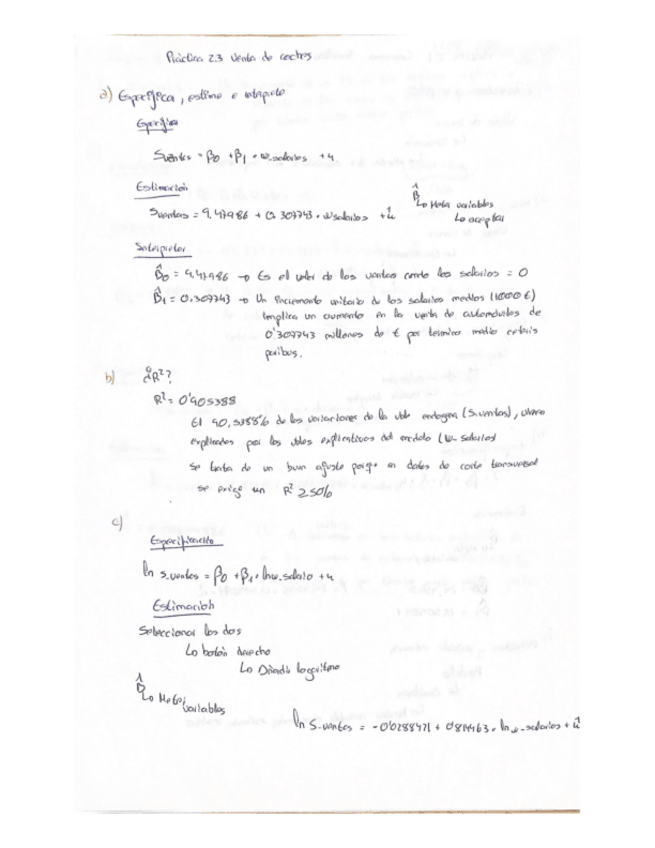 Práctica 2.3 Venta de coches
a) Especifica, estima e interpreta
Especifica
S_ventas = β0 + β1 · w_salarios + u
Estimación
β̂
S_ventas = 9,47986 + 0.307743 · w_salarios + û
↳ Meta variables
↳ aceptar
Interpretar
β̂0 = 9,47986 → Es el valor de las ventas cuando los salarios = 0
β̂1 = 0.307743 → Un incremento unitario de los salarios medios (1000 €)
implica un aumento en la venta de automóviles de
0'307743 millones de € por termino medio ceteris
paribus.
b) ¿R²?
R² = 0'905388
El 90,5388% de las variaciones de la vble endógena (S.ventas), viene
explicadas por las vbles explicativas del modelo (w_salarios)
Se trata de un buen ajuste porque en datos de corte transversal
se exige un R² ≥ 50%
c)
Especificación
ln s_ventas = β0 + β1 · ln w_salario + u
Estimación
Seleccionar las dos
↳ botón derecho
↳ Añadir logaritmo
β̂
↳ Meter variables
ln S_ventas = -0'0288471 + 0'814463 · ln w_salarios + û